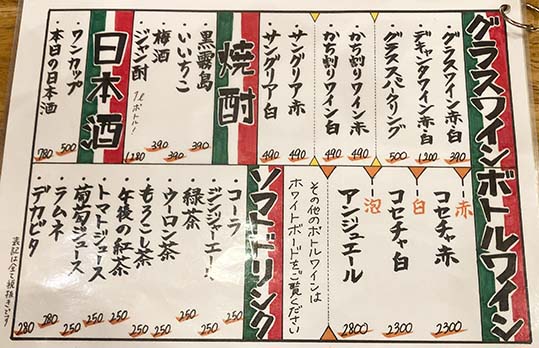 グラスワイン
グラスワイン赤・白 390
デキャンタワイン赤・白 1200
グラススパクリング 500
かち割りワイン赤 490
かち割りワイン白 490
サングリア赤 490
サングリア白 490
焼酎
黒霧島 390
いいちこ 390
梅酒 390
ジャン酎 1280
1Lボトル!
日本酒
ワンカップ 500
本日の日本酒 780
ボトルワイン
赤 コセチャ赤 2300
白 コセチャ白 2300
泡 アンジュエール 2800
その他のボトルワインは
ホワイトボードをご覧ください
ソフトドリンク
コーラ 250
ジンジャーエール 250
緑茶 250
ウーロン茶 250
もろこし茶 250
午後の紅茶 250
トマトジュース 250
葡萄ジュース 250
ラムネ 280
デカビタ 280
表記は全て税抜きです